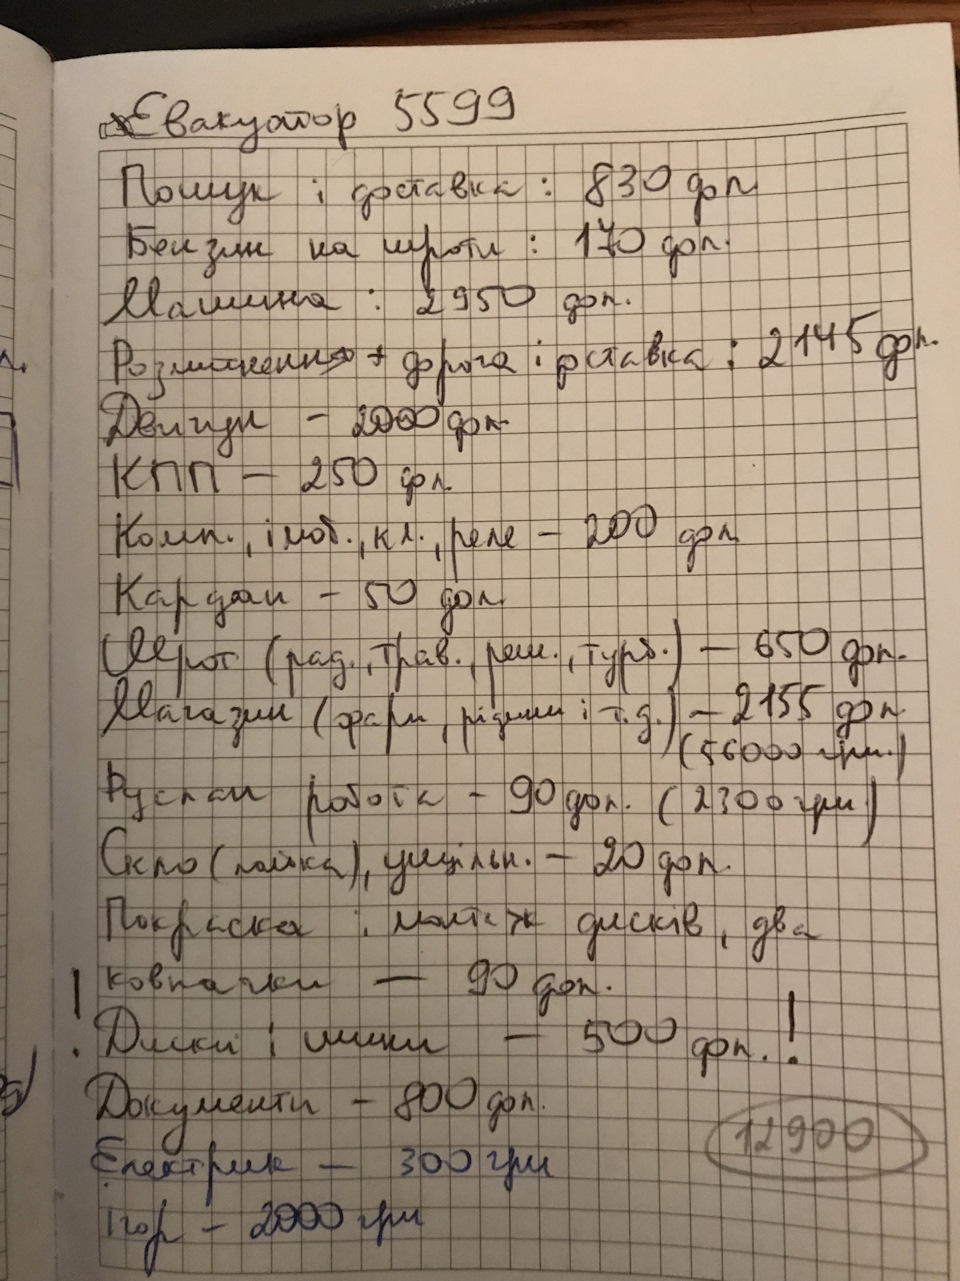 Евакуатор 5599
Пошук і доставка : 830 дол.
Бензин на шроти : 170 дол.
Машина : 2950 дол.
Розмитнення + дорога і доставка : 2145 дол.
Двигун – 2000 дол.
КПП – 250 дол.
Комп., імоб., кл., реле – 200 дол.
Кардан – 50 дол.
Шрот (рад., трав., реш., турб.) – 650 дол.
Магазин (фари, рідини і т.д.) – 2155 дол.
(56000 грн.)
Руслан робота – 90 дол. (2300 грн)
Скло (лайка), ущільн. – 20 дол.
Покраска і монтаж дисків, два
ковпачки – 90 дол.
! Диски і шини – 500 дол. !
Документи – 800 дол.
12900
Електрик – 300 грн
Ігор – 2000 грн